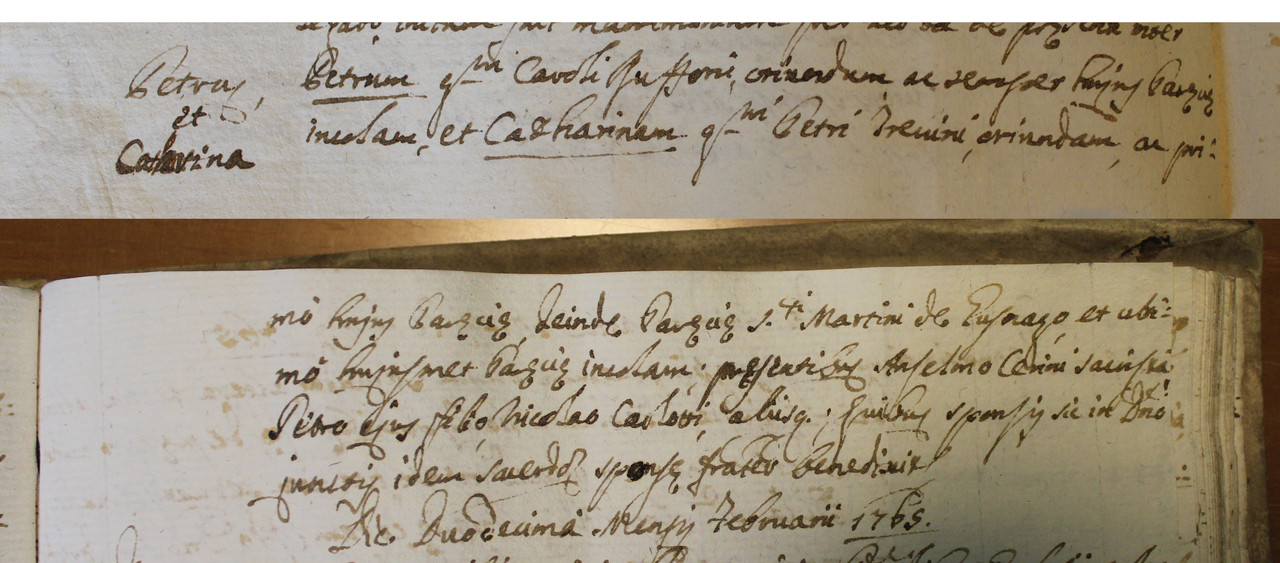 Petrus, et Catarina
Petrum q.m Caroli Zufferii, oriundum ac semper hujus Parȩciȩ
incolam, et Catharinam q.m Petri Trevini, oriundam, ac pri:
mò hujus Parȩciȩ, deinde Parȩciȩ S.ti Martini de Lusnago et ulti:
mò hujusmet Parȩciȩ incolam; prȩsentibus Anselmo Cerini
Petro ejus filio, Nicolao Carlotti, aliisq.; quibus sponsis sic in Dno
junctis idem sacerdos sponsȩ frater benedixit
Die Duodecima Mensis Februarii 1765.